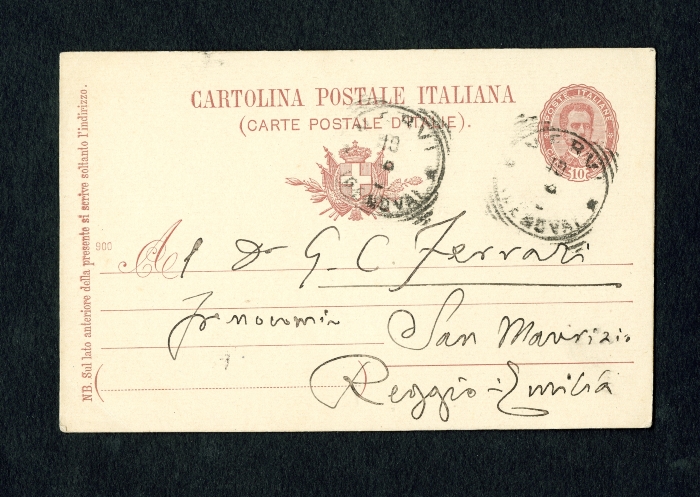 NB. Sul lato anteriore della presente si scrive soltanto l'indirizzo.
CARTOLINA POSTALE ITALIANA
(CARTE POSTALE D'ITALIE).
POSTE ITALIANE
10
NERVI
GENOVA
NERVI
GENOVA
900
Al Dr G. C. Ferrari
Frenocomio San Maurizio
Reggio-Emilia